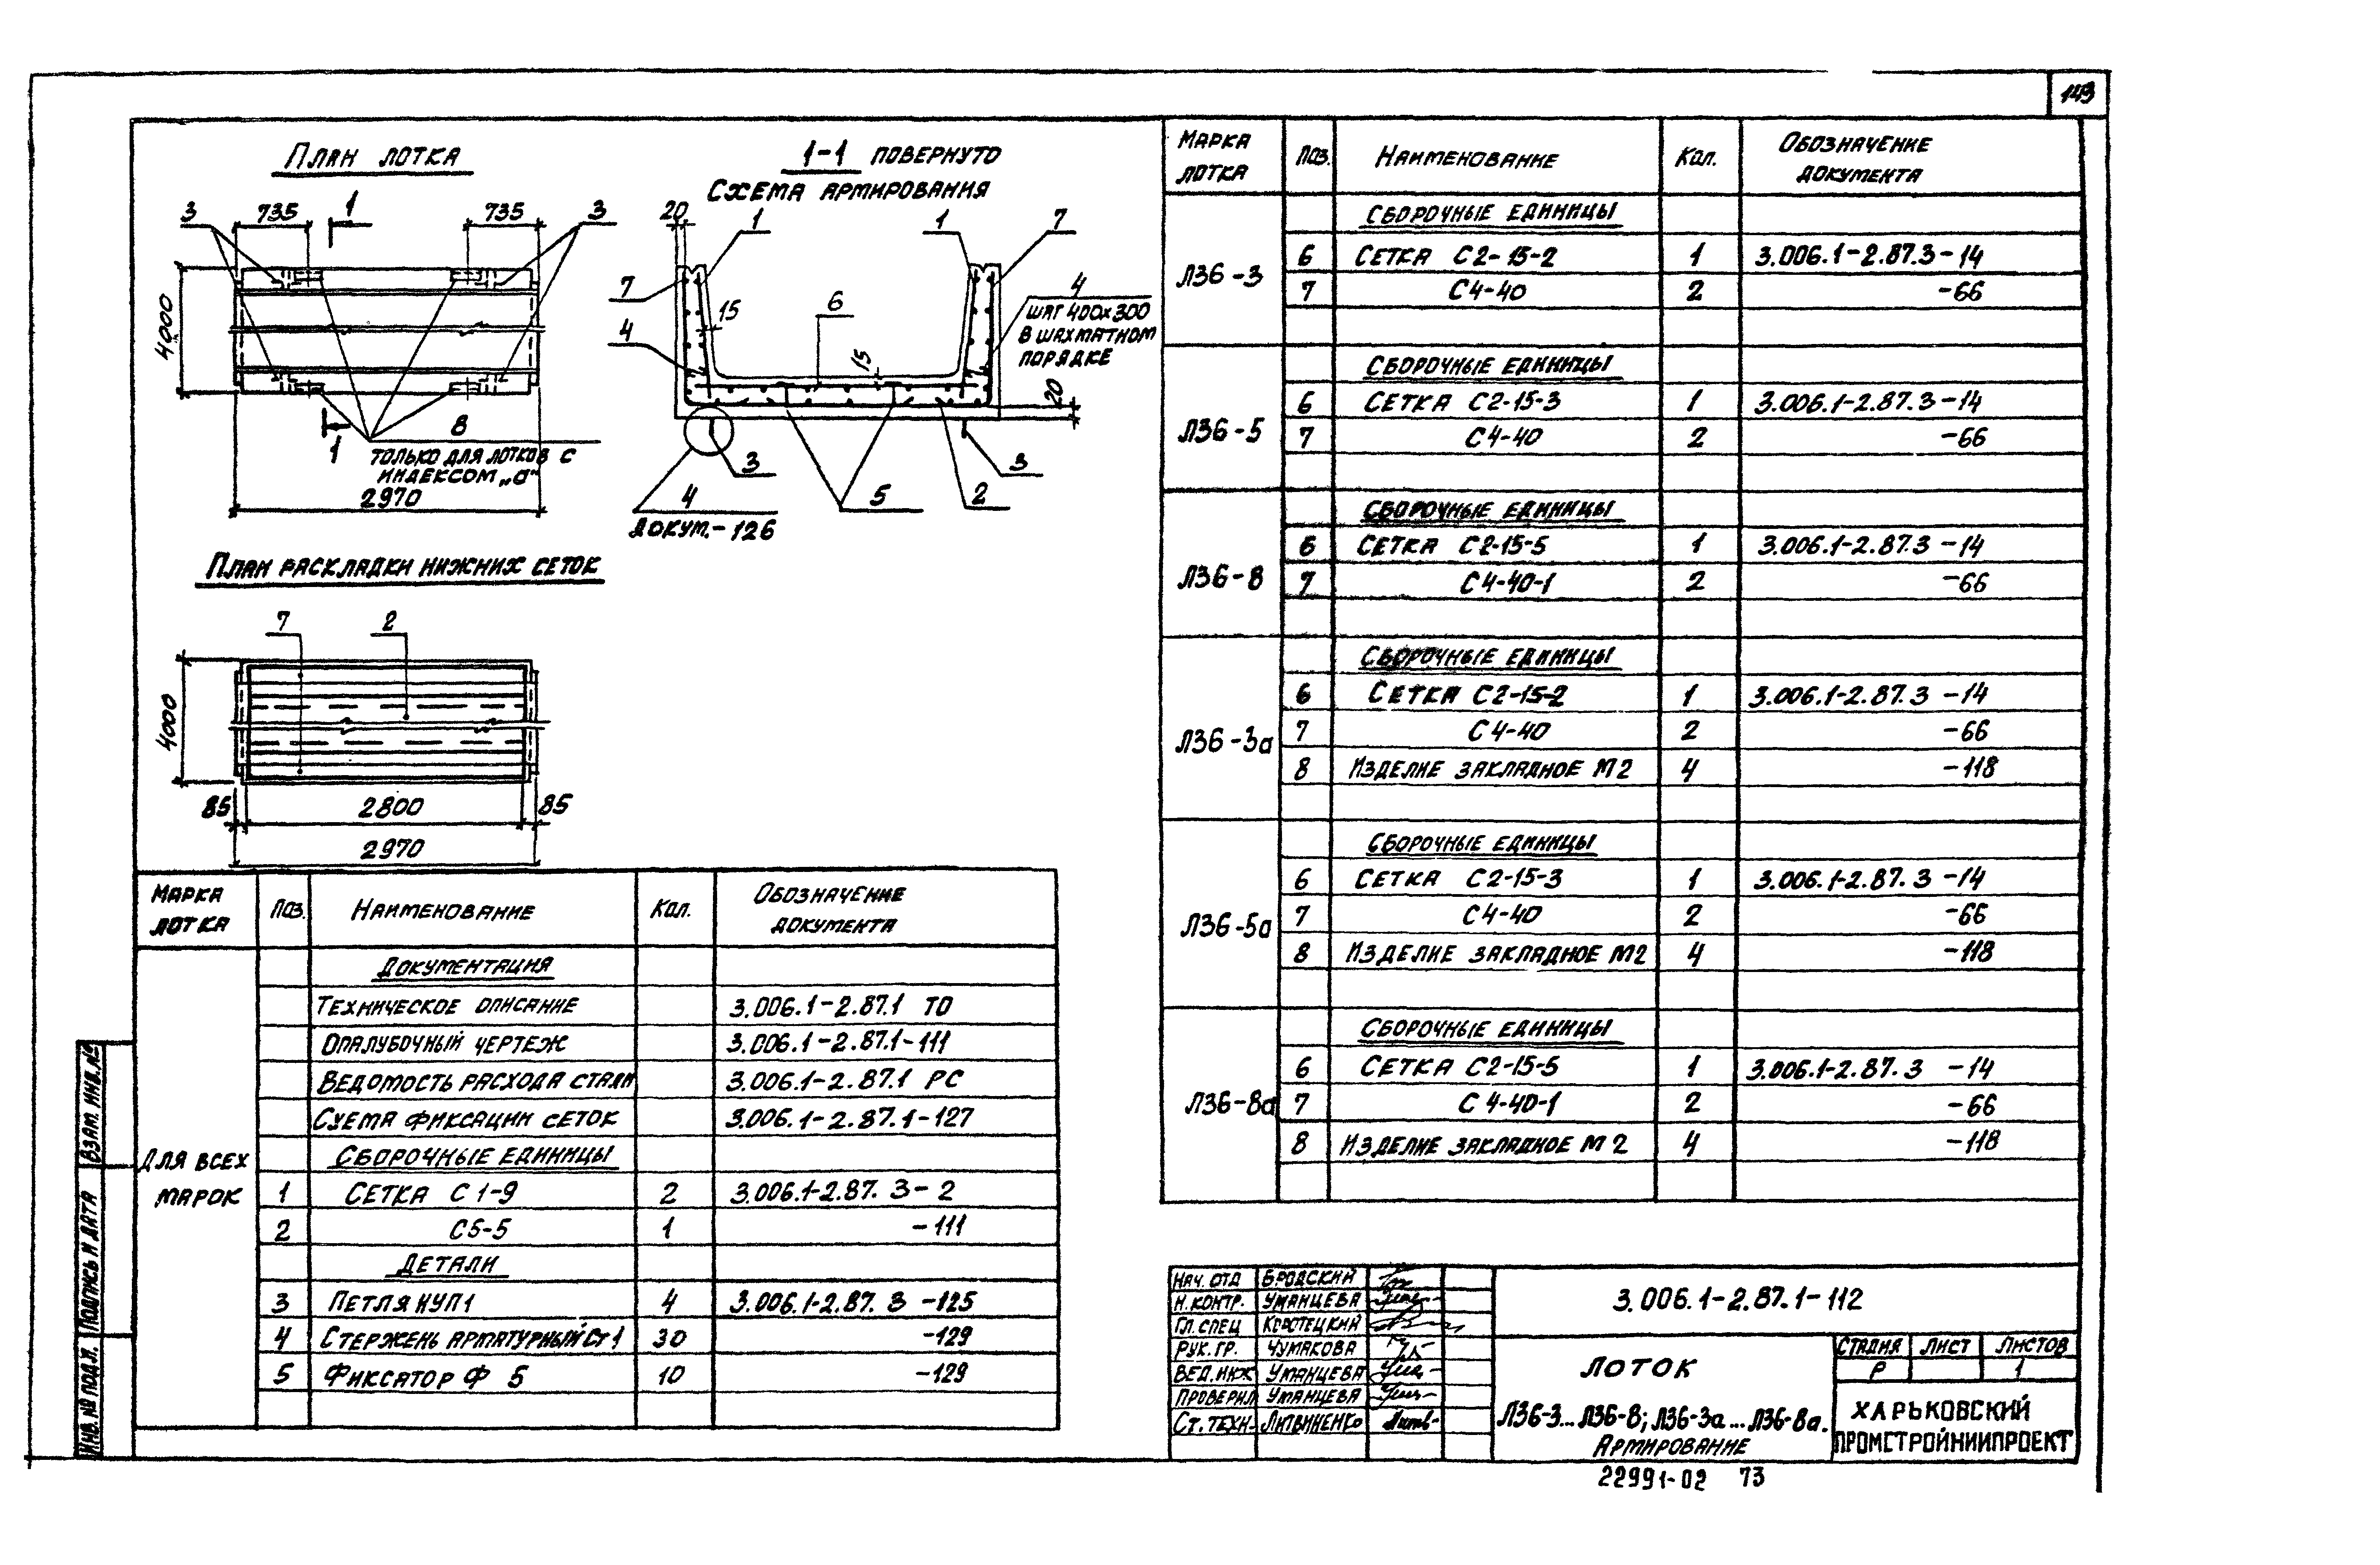 143
План лотка
1-1 повернуто
Схема армирования
3 735 1 735 3
4000
8
только для лотков с
индексом „а"
1
2970
20 1 1 7
7 15 6 4
шаг 400х300
в шахматном
порядке
4 15 20
3 3
4 5 2
докум.-126
План раскладки нижних сеток
7 2
4000
85 2800 85
2970
Марка лотка Поз. Наименование Кол. Обозначение документа
Для всех марок
Документация
Техническое описание 3.006.1-2.87.1 ТО
Опалубочный чертеж 3.006.1-2.87.1-111
Ведомость расхода стали 3.006.1-2.87.1 РС
Схема фиксации сеток 3.006.1-2.87.1-127
Сборочные единицы
1 Сетка С1-9 2 3.006.1-2.87.3-2
2 С5-5 1 -111
Детали
3 Петля КУП1 4 3.006.1-2.87.3-125
4 Стержень арматурный Ст1 30 -129
5 Фиксатор Ф 5 10 -129
Марка лотка Поз. Наименование Кол. Обозначение документа
Л36-3
Сборочные единицы
6 Сетка С2-15-2 1 3.006.1-2.87.3-14
7 С4-40 2 -66
Л36-5
Сборочные единицы
6 Сетка С2-15-3 1 3.006.1-2.87.3-14
7 С4-40 2 -66
Л36-8
Сборочные единицы
6 Сетка С2-15-5 1 3.006.1-2.87.3-14
7 С4-40-1 2 -66
Л36-3а
Сборочные единицы
6 Сетка С2-15-2 1 3.006.1-2.87.3-14
7 С4-40 2 -66
8 Изделие закладное М2 4 -118
Л36-5а
Сборочные единицы
6 Сетка С2-15-3 1 3.006.1-2.87.3-14
7 С4-40 2 -66
8 Изделие закладное М2 4 -118
Л36-8а
Сборочные единицы
6 Сетка С2-15-5 1 3.006.1-2.87.3-14
7 С4-40-1 2 -66
8 Изделие закладное М2 4 -118
Нач. отд Бродский
Н.контр. Уманцева
Гл. спец Коротецкий
Рук. гр. Чумакова
Вед. инж Уманцева
Проверил Уманцева
Ст. техн. Литвиненко
3.006.1-2.87.1-112
Лоток
Л36-3...Л36-8; Л36-3а...Л36-8а.
Армирование
Стадия Лист Листов
Р 1
Харьковский
Промстройниипроект
22991-02 73
Взам. инв.№
Подпись и дата
Инв. № подл.